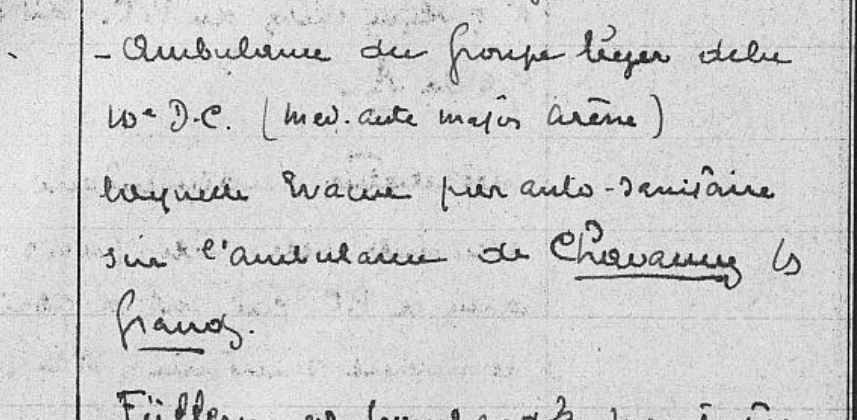 - Ambulance du groupe léger de la
10e D.C. (Med. aide major Arène)
laquelle évacue par auto-sanitaire
sur l'ambulance de Chavannes ls
Grands.